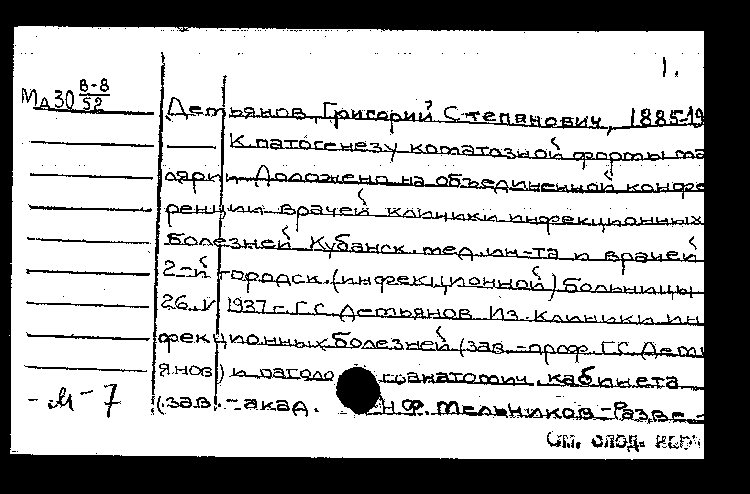 1.
МД30 В-8/52
Детьянов, Григорий Степанович, 1885-19
К патогенезу коматозной формы ма
лярии. Доложено на объединенной конфе
ренции врачей клиники инфекционных
болезней Кубанск. мед. ин-та и врачей
2-й городск. (инфекционной) больницы
26.V 1937 г. Г.С. Детьянов. Из клиники ин
фекционных болезней (зав. - проф. Г.С. Деть
янов) и патоло анатомич. кабинета
(зав. - акад. Н.Ф. Мельников-Разве-
-М-7
См. след.